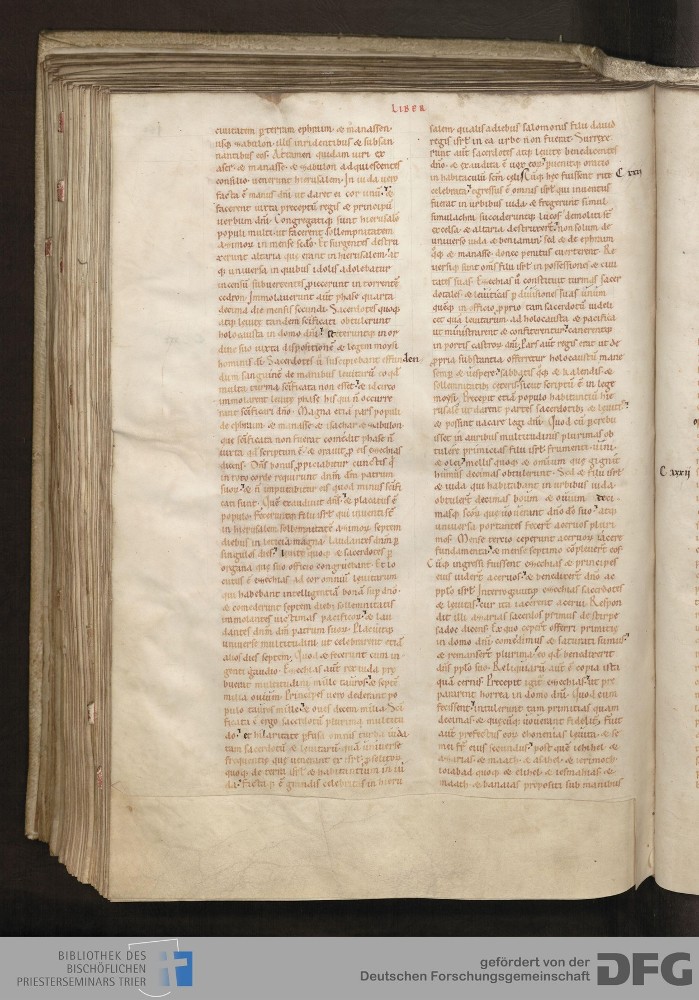 LIBER
civitatem p terram ephraim & manassen.
usq; zabulon. illis irridentibus & subsan
nantibus eos. Attamen quidam viri ex
aser & manasse & zabulon adquiescentes
consilio. venerunt hierusalem. In iuda vero
facta ē manus dn̄i ut daret ei cor unū. &
facerent iuxta preceptū regis & principū
verbum dn̄i. Congregatiq; sunt hierusalē
populi multi. ut facerent sollempnitatem
azimorū in mense scd̄o. Et surgentes destru
xerunt altaria que erant in hierusalem. &
universa in quibus idolis adolebatur
incensū subvertentes. piecerunt in torrentē
cedron. Immolaverunt aut̄ phase quarta
decima die mensis secundi. Sacerdotes quoq;
atq; levite tandem scīficati obtulerunt
holocausta in domo dn̄i. steteruntq; in or
dine suo iuxta dispositionē & legem moysi
hominis dī. Sacerdotes ū suscipiebant effunden
dum sanguinē de manibus levitarū eo qd
multa turma scīficata non esset. & idcirco
immolarent levite phase his qui n̄ occurre
rant scīficari dn̄o. Magna etiā pars populi
de ephraim & manasse & isachar & zabulon.
que scīficata non fuerat comedit phase n̄
iuxta qd scriptum ē. & oravit p eis ezechias
dicens. Dn̄s bonus ppiciabitur cunctis q
in toto corde requirunt dn̄m dm̄ patrum
suorū. & n̄ imputabitur eis quod minus scīfi
cati sunt. Quē exaudivit dn̄s. & placatus ē
populo. Feceruntq; filii isrl qui inventi st̄
in hierusalem sollempnitatē azimorū septem
diebus in leticia magna. laudantes dn̄m p
singulos dies. levite quoq; & sacerdotes p
organa que suo officio congruebant. Et lo
cutus ē ezechias ad cor omniū levitarum
qui habebant intelligentiā bonā sup dn̄o.
& comederunt septem dieb; sollemnitatis
immolantes victimas pacificorū. & lau
dantes dn̄m dm̄ patrum suorū. Placuitq;
universe multitudini ut celebrarent etiā
alios dies septem. Quod & fecerunt cum in
genti gaudio. Ezechias aut̄ rex iuda pre
buerat multitudini mille tauros. & septē
milia ovium. Principes vero dederant po
pulo tauros mille. & oves decem milia. Scī
ficata ē ergo sacerdotū plurima multitu
do. et hilaritate pfusa omnis turba iuda.
tam sacerdotū & levitarū quā universe
frequentie que venerant ex isrl. pselitorū
quoq; de terra isrl & habitantium in iu
da. Facta q; ē grandis celebritas in hieru
salem. qualis a diebus salomonis filii david
regis isrl in ea urbe non fuerat. Surrexe
runt aut̄ sacerdotes atq; levite benedicentes
dn̄o. & exaudita ē vox eorū. pvenitq; oratio
in habitaculū scm̄ celi. Cūq; hec fuissent rite C. xxxi
celebrata. egressus ē omnis isrl qui inventus
fuerat in urbibus iuda. & fregerunt simul
simulachra succideruntq; lucos. demoliti st̄
excelsa & altaria destruxerūt. non solum de
universo iuda & beniamin. sed & de ephraim
q; & manasse donec penitus everterent. Re
versiq; sunt om̄s filii isrl in possessiones & civi
tates suas. Ezechias ū constituit turmas sacer
dotales. & leviticas p divisiones suas unum
quēq; in officio pprio. tam sacerdotū videli
cet quā levitarum. ad holocausta & pacifica
ut ministrarent & confiterentur. canerentq;
in portis castrorū dn̄i. Pars aut̄ regis erat ut de
ppria substantia offerretur holocaustū mane
semp & vespere. sabbatis q; & kalendis &
sollemnitatib; ceteris. sicut scriptū ē in lege
moysi. Precepit etiā populo habitantiū hie
rusalē ut darent partes sacerdotib; & levitis.
& possint vacare legi dn̄i. Quod cū pcrebu
isset in aurib; multitudinis. plurimas ob
tulere primicias filii isrl frumenti. vini.
& olei. mellis quoq; & omnium que gignit
humus decimas obtulerunt. Sed & filii isrl
& iuda. qui habitabant in urbibus iuda.
obtulerūt decimas boum & ovium. deci
masq; scorū que voverant dn̄o dō suo. atq;
universa portantes fecerūt acervos pluri
mos. Mense tercio ceperunt acervorū iacere
fundamenta. & mense septimo cōpleverūt eos. C. xxxii
Cūq; ingressi fuissent ezechias & principes
eius viderūt acervos. & benedixerūt dn̄o ac
pplo isrl. Interrogavitq; ezechias sacerdotes
& levitas. cur ita iacerent acervi. Respon
dit illi azarias sacerdos primus de stirpe
sadoc dicens. Ex quo ceperūt offerri primitie
in domo dn̄i. comedimus & saturati sumus.
& remanserūt plurima. eo qd benedixerit
dn̄s pplo suo. Reliquiarū aut̄ ē copia ista
quā cernis. Precepit igit̄ ezechias. ut pre
pararent horrea in domo dn̄i. Quod cum
fecissent. intulerunt tam primitias quam
decimas. & quecūq; voverant fideliter. Fuit
aut̄ prefectus eorū chonenias levita. & se
mei fr̄ eius secundus. post quē iehihel. &
azarias. & naath. & asahel. & ierimoth.
iozabad quoq; & elihel. & iesmahias. &
maath. & banaias prepositi sub manibus
BIBLIOTHEK DES
BISCHÖFLICHEN
PRIESTERSEMINARS TRIER
gefördert von der
Deutschen Forschungsgemeinschaft
DFG